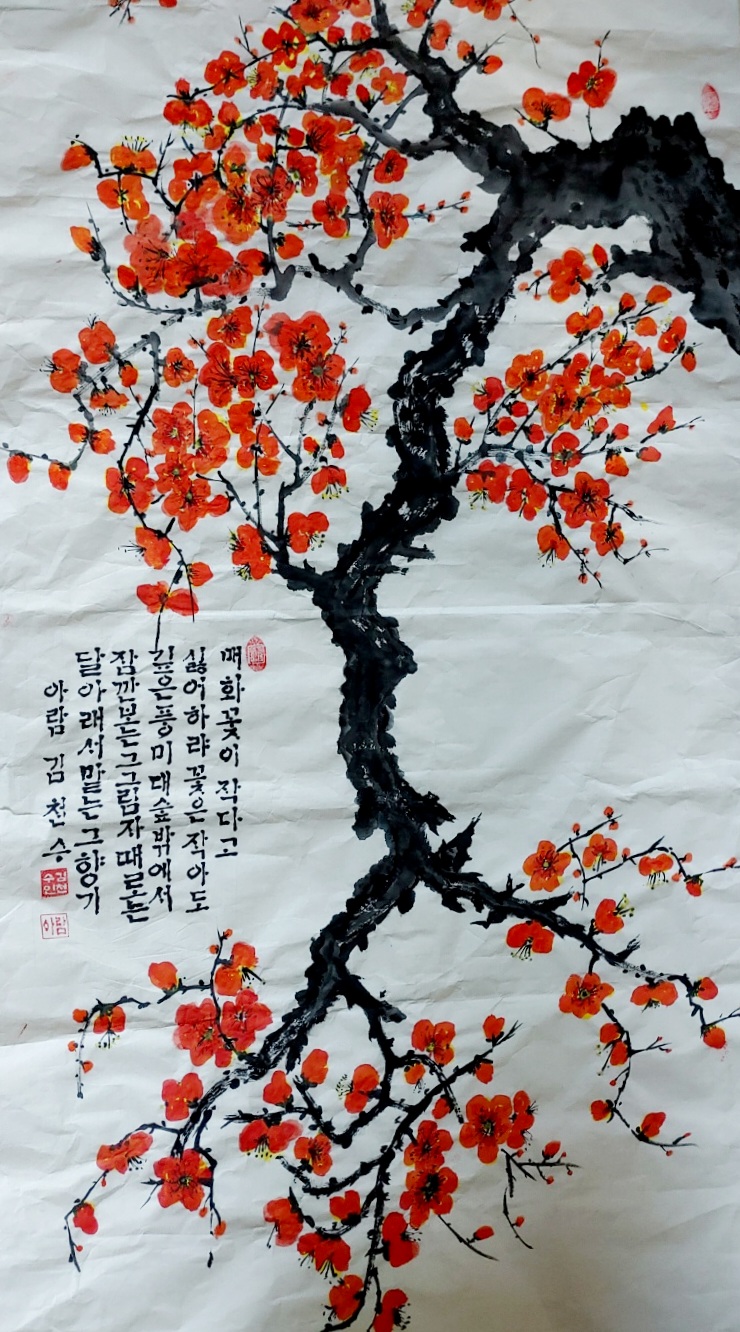 매화꽃이 작다고
싫어하랴 꽃은 작아도
깊은 풍미 대숲 밖에서
잠깐 보는 그 그림자 때로는
달 아래서 맡는 그 향기
아람 김천수
김천수인
아람